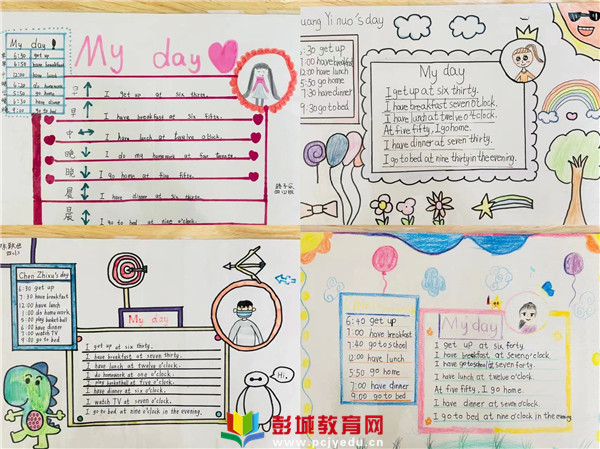 My day
6:30 get up
6:50 have breakfast
12:00 have lunch
4:20 do homework
5:50 go home
6:30 have dinner
9:00 go to bed
My day
I get up at six thirty.
早 I have breakfast at six fifty.
中 I have lunch at twelve o'clock.
晚 I do my homework at four twenty.
晚 I go home at five fifty.
晨 I have dinner at six thirty.
晨 I go to bed at nine o'clock.
uang Yi nuo's day
6:30 get up
7:00 have breakfast
12:00 have lunch
5:30 go home
7:30 have dinner
9:30 go to bed
My day
I get up at six thirty.
I have breakfast seven o'clock.
I have lunch at twelve o'clock.
At five fifty, I go home.
I have dinner at seven thirty.
I go to bed at nine thirty in the evening.
Chen Zhixu's day
6:30 get up
7:30 have breakfast
12:00 have lunch
1:00 do home work
5:00 play basketball
6:00 have dinner
7:00 watch TV
9:00 go to bed
My day
I get up at six thirty.
I have breakfast at seven thirty.
I have lunch at twelve o'clock.
I do homework at one o'clock.
I play basketball at five o'clock.
I have dinner at six o'clock.
I watch TV at seven o'clock.
I go to bed at nine o'clock in the evening.
Hi.
6:40 get up
7:00 have breakfast
7:40 go to school
12:00 have lunch
5:50 go home
7:00 have dinner
9:00 go to bed
My day
I get up at six forty.
I have breakfast at seven o'clock.
I have go to school at seven forty.
I have lunch at twelve o'clock.
At five fifty, I go home.
I have dinner at seven o'clock.
I go to bed at nine o'clock in the evening
彭城教育网
www.pcjyedu.cn